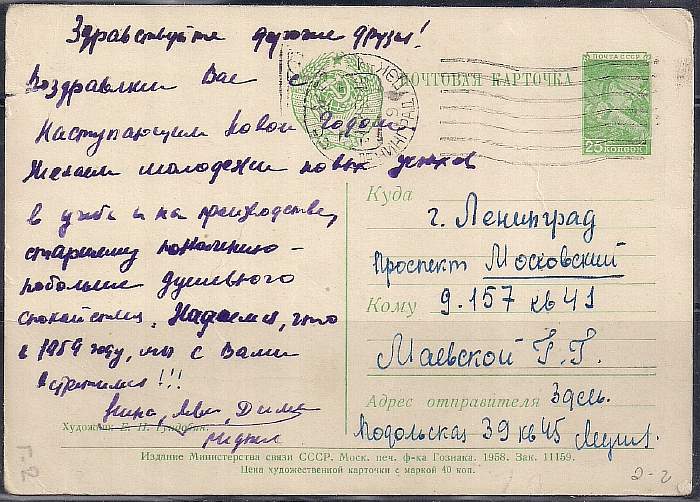 Здравствуйте дорогие друзья!
Поздравляем Вас с
Наступающим Новым Годом.
Желаем молодежи новых успехов
в учебе и на производстве,
старшему поколению –
побольше душевного
спокойствия. Надеемся, что
в 1959 году, мы с Вами
встретимся!!!
Нина, Дима
ПОЧТА СССР
25 КОПЕЕК
ПОЧТОВАЯ КАРТОЧКА
Куда
г. Ленинград
Проспект Московский
Кому
д. 157 кв 41
Маевской Г. Г.
Адрес отправителя Здесь.
Подольская 39 кв 45
Художник Е. Н. Гундобин.
Издание Министерства связи СССР. Моск. печ. ф-ка Гознака. 1958. Зак. 11159.
Цена художественной карточки с маркой 40 коп.